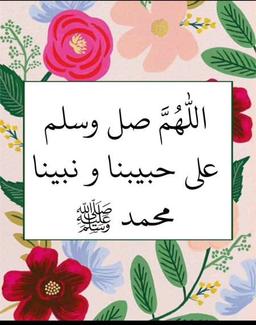 اللّٰهُمَّ صل وسلم
على حبيبنا و نبينا
محمد ﷺ